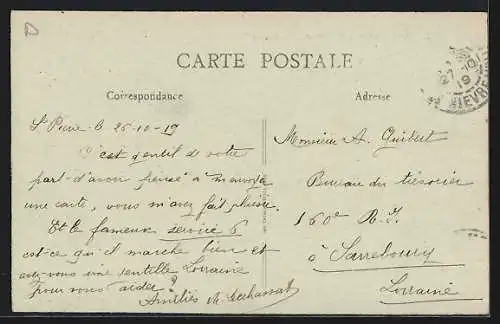 CARTE POSTALE
Correspondance
Adresse
27-10
19
NIEVRE
St Pierre 25-10-19
C'est gentil de votre
part d'avoir pensé à m'envoyer
une carte, vous m'avez fait plaisir.
Et le fameux service 6
est-ce qu'il marche bien et
avez-vous une gentille Lorraine
pour vous aider ?
Amitiés
Monsieur A. Guibert
Bureau du trésorier
160e R.I.
à Sarrebourg
Lorraine